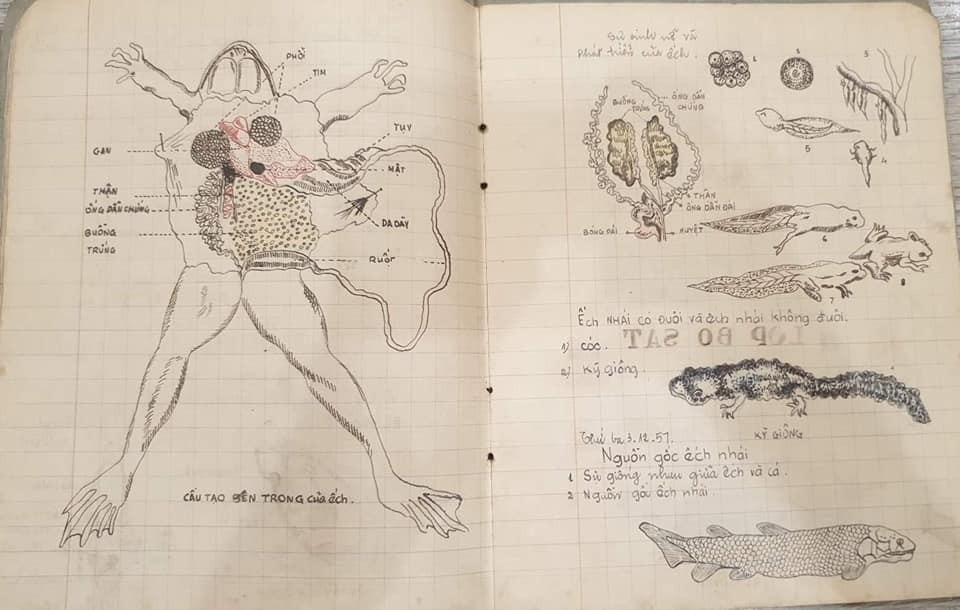 PHỔI
TIM
TỤY
GAN
MẬT
THẬN
ỐNG DẪN CHỨNG
DA DÀY
BUỒNG
TRỨNG
RUỘT
CẤU TẠO BÊN TRONG của ếch.
Sự sinh nở và
Phát triển của ếch.
1
2
3
BUỒNG
TRỨNG
ỐNG DẪN
CHỨNG
5
4
THẬN
ỐNG DẪN ĐÁI
BÓNG ĐÁI
HUYỆT
6
7
8
Ếch NHÁI CÓ ĐUÔI và ếch nhái không đuôi.
LỚP BÒ SÁT
1) CÓC.
2) Kỳ giông.
KỲ GIÔNG
Thứ ba 3.12.57.
Nguồn gốc ếch nhái
1 Sự giống nhau giữa ếch và cá.
2 Nguồn gốc ếch nhái.